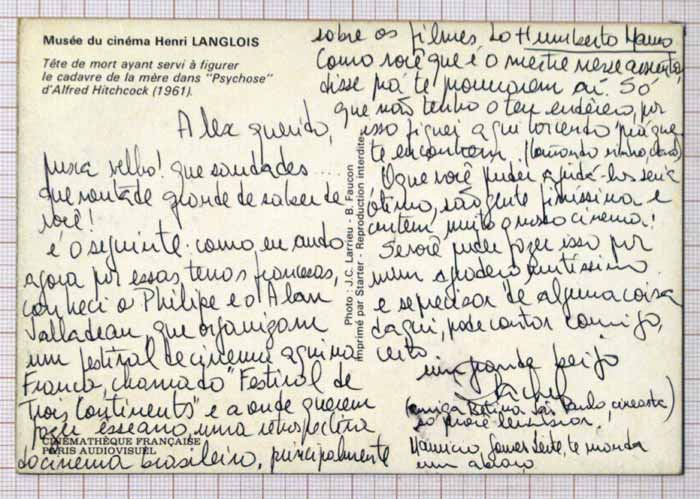 Musée du cinéma Henri LANGLOIS
Tête de mort ayant servi à figurer
le cadavre de la mère dans "Psychose"
d'Alfred Hitchcock (1961).
Alex querido,
puxa velho! que saudades....
que vontade grande de saber de
você!
é o seguinte: como eu ando
agora por essas terras francesas,
conheci o Philipe e o Alan
Jalladeau que organizam
um festival de cinema aqui na
França, chamado "Festival de
Trois Continents" e aonde querem
fazer esse ano, uma retrospectiva
do cinema brasileiro, principalmente
CINÉMATHÈQUE FRANÇAISE
PARIS AUDIOVISUEL
Photo : J.C. Larrieu - B. Faucon
Imprimé par Starter - Reproduction interdite
sobre os filmes do Humberto Mauro
Como você que é o mestre nesse assunto,
disse pra te procurarem aí. Só
que não tenho o teu endereço, por
isso fiquei aqui torcendo pra que
te encontrem.
O que você puder ajudá-los seria
ótimo, são gente finíssima e
curtem muito o nosso cinema!
Se você puder fazer isso por
mim agradeço muitíssimo
e se precisar de alguma coisa
daqui, pode contar comigo,
certo.
um grande beijo
(amiga São Paulo, cineasta)
só procê lembrar.
Mauricio Gomes Leite, te manda
um abraço